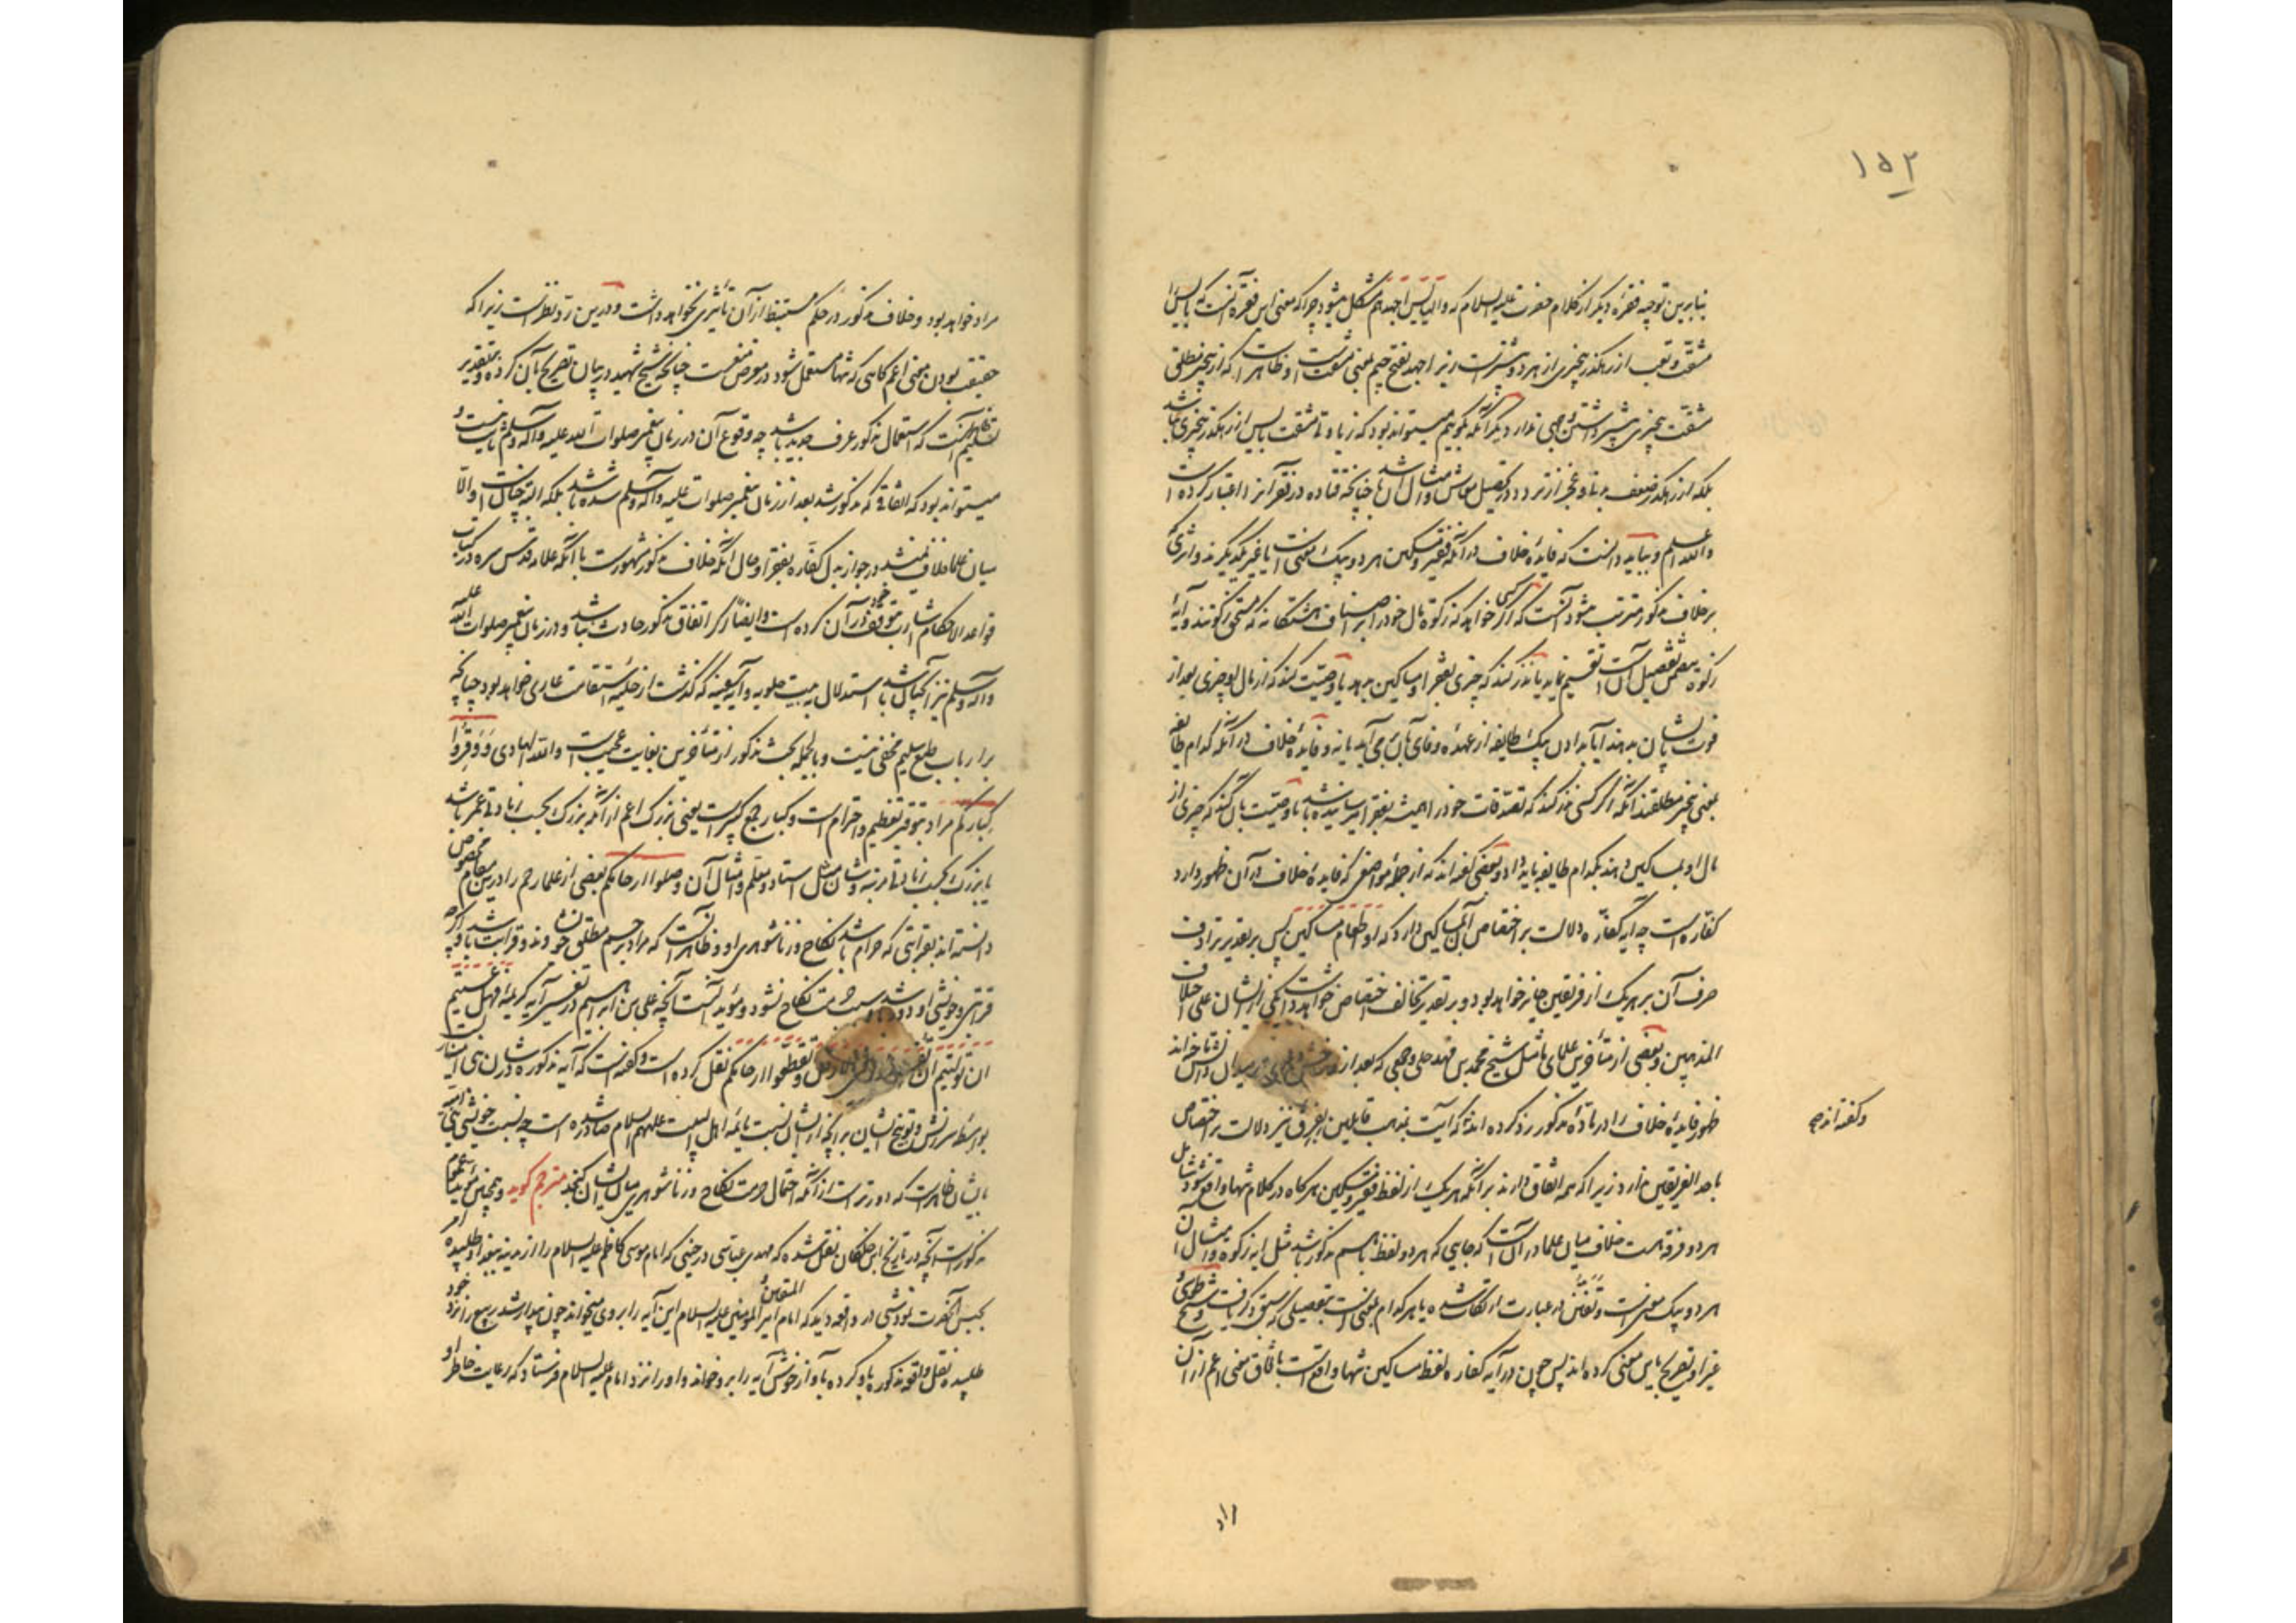 ۱۵۲
بنابرین توجیه فقرهٔ دیگر از کلام حضرت علیه السلام که والبائس اجهدهم مشکل میشود چرا که معنی این فقره آنست که بائس
مشقت و تعب از رهگذر بی‌چیزی از هر دو بیشترست زیرا جهد بفتح جیم بمعنی مشقت است و ظاهرا که از بی‌چیز مطلق
مشقت بی‌چیزی بیشتر داشتن وجهی ندارد مگر آنکه گوییم میتواند بود که زیادتی مشقت بائس از رهگذر بی‌چیزی نباشد
بلکه از رهگذر ضعف بدن و عجز از تردد در تحصیل معاش و امثال آن باشد چنانچه قتاده در فقیر آنرا اعتبار کرده است
والله اعلم و بباید دانست که فایدهٔ خلاف در آنکه فقیر و مسکین هر دو بیک معنی است یا غیر یکدیگرند و اثری که
بر خلاف مذکور مترتب میشود آنست که اگر کسی خواهد که زکوة مال خود را بر اصناف هشتگانه که مستحق زکوتند و آیهٔ
زکوة متضمن تفصیل آنست تقسیم نماید یا نذر کند که چیزی بفقرا و مساکین بدهد یا وصیت کند که از مال او چیزی بعد از
فوت بایشان بدهند آیا بدادن بیک طایفه از عهدهٔ وفای بآن برمی آید یا نه و فایدهٔ خلاف در آنکه کدام طایفه
بمعنی بی‌چیز مطلقند آنکه اگر کسی نذر کند که تصدقات خود را همیشه بفقرا میرسانیده باشد یا وصیت بآن کند که چیزی از
مال او بمساکین دهند بکدام طایفه باید داد و بعضی گفته اند که از جملهٔ مواضعی که فایدهٔ خلاف در آن ظهور دارد
کفاره است چه آیه کفاره دلالت بر اختصاص آن بمساکین دارد که او اطعام مساکین پس بر تقدیر ترادف
صرف آن بر هر یک از فریقین جایز خواهد بود و بر تقدیر تخالف اختصاص خواهد داشت بیکی از ایشان علی اختلاف
المذهبین و بعضی از متأخرین علمای ما مثل شیخ محمد بن فهد حلی وجهی که بعد از
ظهور فایدهٔ خلاف را در مادهٔ مذکور رد کرده اند که آیت بمذهب قایلین بفرق نیز دلالت بر اختصاص
وگفته اند صح
باحد الفریقین ندارد زیرا که همه اتفاق دارند بر آنکه هر یک از لفظ فقیر و مسکین هر گاه در کلام تنها واقع شود شامل
هر دو فرقه است خلاف میان علما در آنست که جایی که هر دو لفظ با هم مذکور باشد مثل آیه زکوة و امثال آن
هر دو بیک معنی است و تفنن در عبارت ارتکاب شده یا هر کدام بمعنی است بتفصیلی که سبق ذکر یافت و شیخ طوسی
غیر او تصریح باین معنی کرده اند پس چون در آیه کفاره لفظ مساکین تنها واقع است باتفاق معنی اعم از آن
مراد
مراد خواهد بود و خلاف مذکور در حکم مستنبط از آن تأثیری نخواهد داشت و درین رد نظرست زیرا که
حقیقت بودن معنی اعم گاهی که تنها مستعمل شود در معرض منعست چنانچه شیخ شهید در بیان تصریح بآن کرده و بتقدیر
تسلیم ظاهر آنست که استعمال مذکور عرف جدید باشد چه وقوع آن در زمان پیغمبر صلوات الله علیه و آله وسلم ثابت نیست و
میتواند بود که اتفاقی که مذکور شد بعد از زمان پیغمبر صلوات علیه و آله وسلم شده باشد بلکه البته چنان است و الا
میان علما خلاف نمیشد در جواز بذل کفاره بفقیر و حال آنکه خلاف مذکور مشهورست با آنکه علامه قدس سره در کتاب
قواعد الاحکام اشارت بتوقف خود در آن کرده است و ایضاً اگر اتفاق مذکور حادث نباشد و در زمان پیغمبر صلوات الله علیه
و آله وسلم نیز آنچنان باشد استدلال ببیت حلوبه و آیه سفینه که گذشت از حلیهٔ استقامت عاری خواهد بود چنانچه
بر ارباب طبع سلیم مخفی نیست و بالجمله بحث مذکور از متأخرین بغایت عجیب است والله الهادی وَوَقِّرُوا
کبارکم مراد بتوقیر تعظیم و احترام است و کبار جمع کبیر است یعنی بزرگ اعم از آنکه بزرگ بحسب زیادتی عمر باشد
یا بزرگ بحسب زیادتی مرتبه و شان مثل استاد و معلم و امثال آن وصلوا ارحامکم بعضی از علما رحم را درین مقام مخصوص
دانسته اند بقرابتی که حرام باشد نکاح و زناشوهری او و ظاهر آنست که مراد برحم مطلق خویشان و قرابت باشد اگرچه
قرابتی و خویشی او دور باشد سبب حرمت نکاح نشود و مؤید آنست آنچه علی بن ابراهیم در تفسیر آیه کریمه فهل عسیتم
ان تولیتم ان تفسدوا فی الارض و تقطعوا ارحامکم نقل کرده است و گفته است که آیه مذکوره در شان بنی امیه نازل
بواسطه سرزنش و توبیخ ایشان بر آنچه از ایشان نسبت بائمه اهل البیت علیهم السلام صادر شده است چه نسبت خویشی بنی امیه
بایشان ظاهرست که دورترست از آنکه احتمال حرمت نکاح و زناشوهری میان ایشان گنجد مترجم گوید و همچنین مؤید عموم
مذکورست آنچه در تاریخ ابن خلکان نقل شده که مهدی عباسی در حینی که امام موسی کاظم علیه السلام را از مدینه ببغداد طلبیده امر
بحبس آنحضرت نمود شبی در واقعه دید که امام المتقین امیر المؤمنین علیه السلام این آیه را بر وی میخواند چون بیدار شد ربیع را نزد خود
طلبیده نقل واقعه مذکوره باو کرده بآواز خوش آیه را برو خواند و او را نزد امام علیه السلام فرستاد که رعایت خاطر او